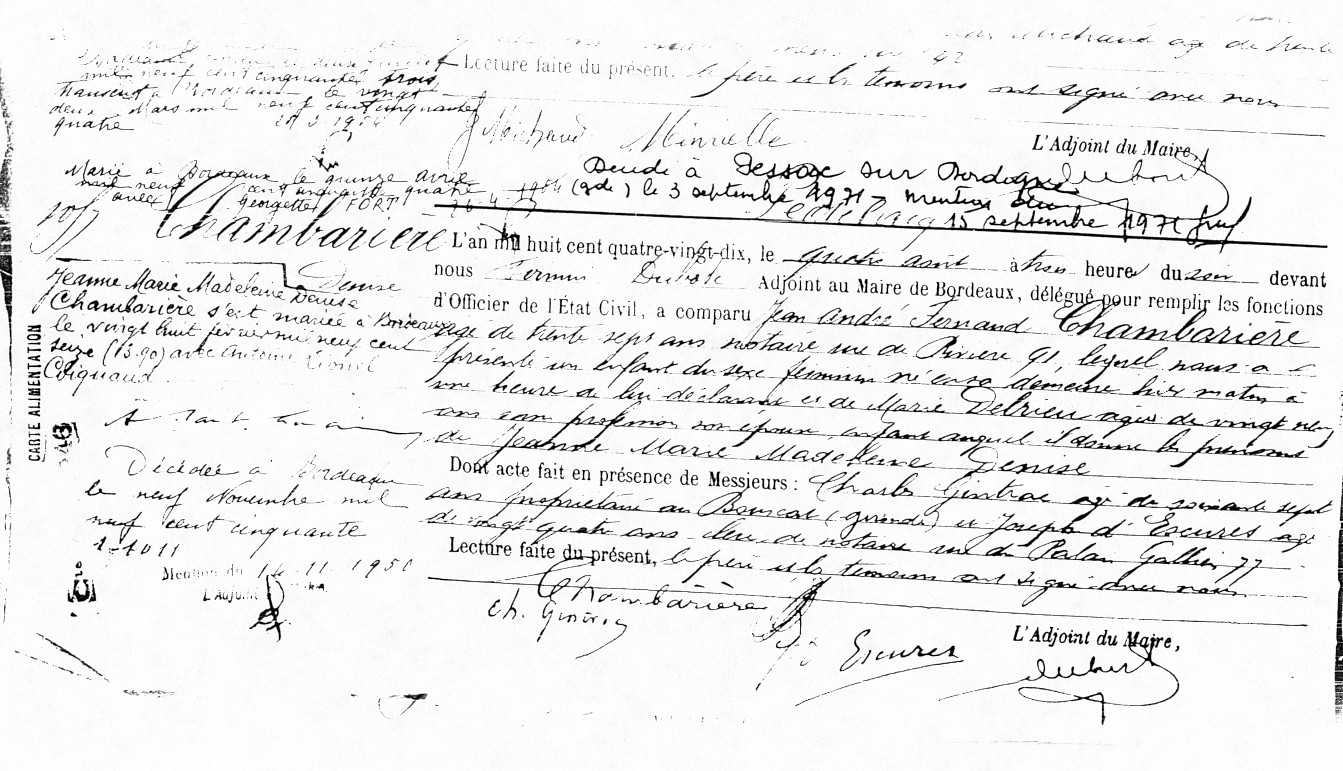 Michaud âgé de trente
Lecture faite du présent, le père et les témoins ont signé avec nous
mil neuf cent cinquante trois
transcrit à Bordeaux le vingt
deux Mars mil neuf cent cinquante
quatre
Michaud Minielle
L'Adjoint du Maire,
Décédé à Pessac sur Dordogne
(gde) le 3 septembre 1971 Mention
15 septembre 1971
Marié à Bordeaux le quinze avril
mil neuf cent cinquante quatre 1954
avec Georgette FORT
1057
Chambarière
Denise
L'an mil huit cent quatre-vingt-dix, le quatre août à trois heures du soir devant
nous Dubosc Adjoint au Maire de Bordeaux, délégué pour remplir les fonctions
d'Officier de l'État Civil, a comparu Jean André Fernand Chambarière
âgé de trente sept ans notaire rue de Rivière 91, lequel nous a
présenté un enfant du sexe féminin né en sa demeure hier matin à
une heure de lui déclarant et de Marie Delrieu agée de vingt neuf
ans san profession son épouse, enfant auquel il donne les prénoms
de Jeanne Marie Madeleine Denise
Dont acte fait en présence de Messieurs : Charles Gintrac agé de soixante sept
ans propriétaire au Bouscat (gironde) et Joseph d'Escures agé
de vingt quatre ans clerc de notaire rue du Palais Gallien 77
Lecture faite du présent, le père et les témoins ont signé avec nous
Chambarière
Ch. Gintrac
Escures
L'Adjoint du Maire,
Jeanne Marie Madeleine Denise
Chambarière s'est mariée à Bordeaux
le vingt huit février mil neuf cent
seize (B.90) avec Antoine Lionel
Coiquaud
CARTE ALIMENTATION
Décédée à Bordeaux
le neuf Novembre mil
neuf cent cinquante
1-1011
Mention du 14-11-1950
L'Adjoint